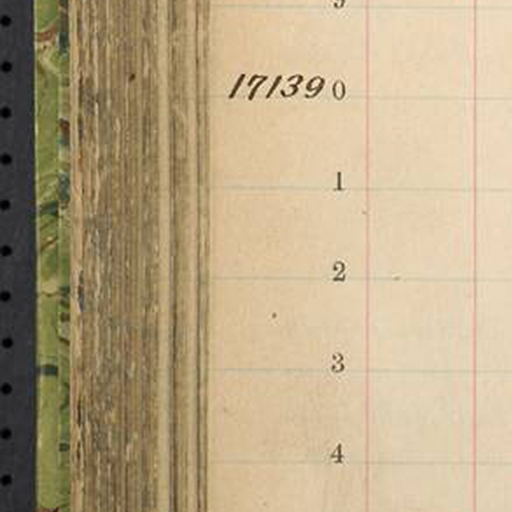 9
171390
1
2
3
4